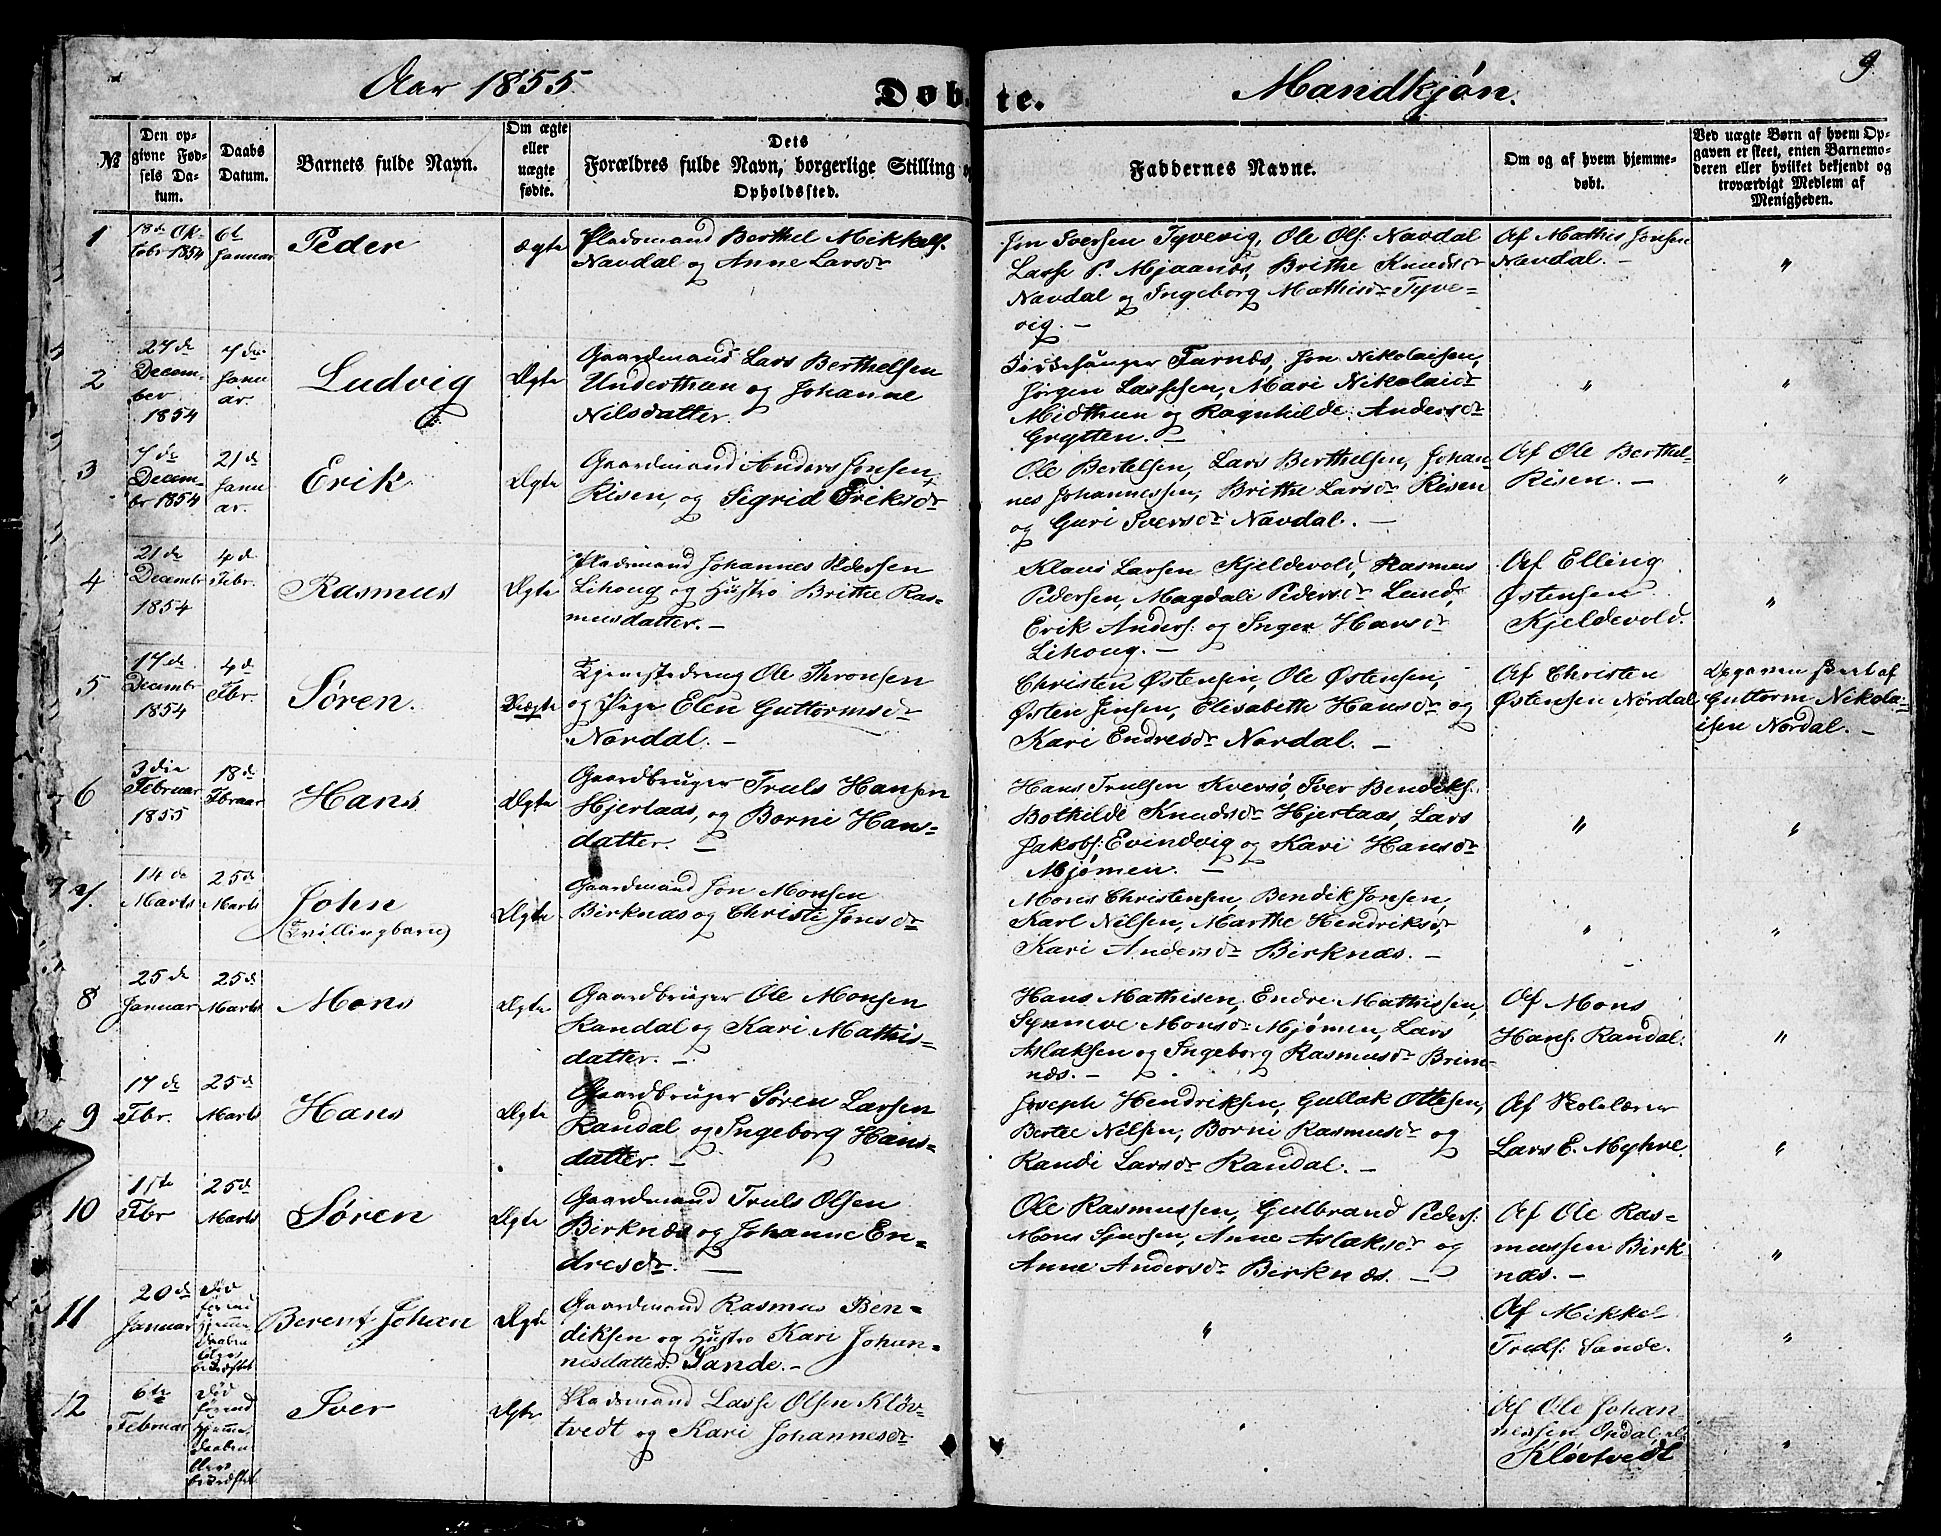 Aar 1855
Døbte.
Mandkjøn.
9
№
Den op-
givne Fød-
sels Da-
tum.
Daabs
Datum.
Barnets fulde Navn.
Om ægte
eller
uægte
fødte.
Dets
Forældres fulde Navn, borgerlige Stilling
Opholdssted.
Faddernes Navne.
Om og af hvem hjemme-
døbt.
Ved uægte Børn af hvem Op-
gaven er skeet, enten Barnemo-
deren eller hvilket bekjendt og
troværdigt Medlem af
Menigheden.
1
18de Ok-
tobr 1854
6t
Januar
Peder
ægte
Pladsmand Berthel Mikkels:
Navdal og Anne Larsdr
Jon Iversen Tyvevig, Ole Ols: Navdal
Lasse P. Mjaanæs, Brithe Knudsdr
Navdal og Ingeborg Mathisdr Tyve-
vig. -
Af Mathis Jonsen
Navdal. -
"
2
27de
Decem-
ber
1854
7de
Janu
ar.
Ludvig
Ægte
Gaardmand Lars Berthelsen
Underthun og Johanne
Nilsdatter.
Kirkesanger Farnæs, Jon Nikolaisen,
Jørgen Lassesen, Mari Nikolaidr
Midthun og Ragnhilde Andersdr
Grytten. -
"
"
3
7de
Decem-
br 1854
21de
Janu
ar.
Erik
Ægte
Gaardmand Anders Jonsen
Risen, og Sigrid Eriksdr
Ole Bertelsen, Lars Berthelsen, Johan-
nes Johannessen, Brithe Larsdr Risen
og Guri Iversdr Navdal. -
Af Ole Berthel-
Risen. -
"
4
21de
Decembr
1854
4de
Febr.
Rasmus
Ægte
Pladsmand Johannes Pedersen
Lihoug og Hustro Brithe Ras-
musdatter. -
Klaus Larsen Kjeldevold, Rasmus
Pedersen, Magdali Pedersdr Lund,
Erik Anders: og Inger Hansdr
Lihoug. -
Af Elling
Østensen
Kjeldevold.
"
5
17de
Decembr
1854
4de
Febr.
Søren.
Uægte
Tjenestedreng Ole Thronsen
og Pige Elen Guttormsdr
Nordal. -
Christen Østensen, Ole Østensen,
Østen Jensen, Elisabeth Hansdr og
Kari Endresdr Nordal. -
Af Christen
Østensen Nordal
Opgaven skeet af
Guttorm Nikola-
isen Nordal. -
6
3die
Februar
1855
18de
Februar
Hans
Ægte
Gaardbruger Truls Hansen
Hjertaas, og Borni Hans-
datter. -
Hans Trulsen Kversø, Iver Bendiks:
Bothilde Knudsdr Hjertaas, Lars
Jakobs: Evindvig og Kari Hansdr
Mjømen. -
"
"
7.
14de
Marts
25de
Marts
John
(Tvillingbarn)
Ægte
Gaardmand Jon Monsen
Birknæs og Christi Jonsdr
Mons Christensen, Bendik Jonsen,
Karl Nilsen, Marthe Hendriksdr,
Kari Andersdr Birknæs. -
"
"
8
25de
Januar
25de
Marts
Mons
Ægte
Gaardbruger Ole Monsen
Randal og Kari Mathis-
datter. -
Hans Mathisen, Endre Mathissen,
Synneve Monsdr Mjømen, Lars
Aslaksen og Ingeborg Rasmusdr Brim-
næs. -
Af Mons
Hans: Randal.
"
9
17de
Febr.
25de
Marts
Hans
Ægte
Gaardbruger Søren Larsen
Randal og Ingeborg Hans-
datter. -
Joseph Hendriksen, Gullak Ottesen,
Bertel Nilsen, Borni Rasmusdr og
Randi Larsdr Randal. -
Af Skolelærer
Lars E. Myhre.
"
10
11te
Febr
25de
Marts
Søren
Ægte
Gaardmand Truls Olsen
Birknæs og Johanne En-
dresdr. -
Ole Rasmussen, Gulbrand Peders:
Mons Sjursen, Anne Aslaksdr og
Anne Andersdr Birknæs. -
Af Ole Ras-
mussen Birk
næs. -
"
11
20de
Januar
Død
førend
Hjemme
Daaben
blev
bekræftet
Berent Johan
Ægte
Gaardmand Rasmus Ben-
diksen og Hustro Kari Johan-
nesdatter Sande. -
"
Af Mikkel
Treds: Sande.
"
12
6te
Februar
Død
førend
Hjemme
Daaben
blev
bekræftet
Iver
Ægte
Pladsmand Lasse Olsen Kløv-
tvedt og Kari Johannesdr
"
Af Ole Johan-
nessen Opdal
Kløvtvedt
"